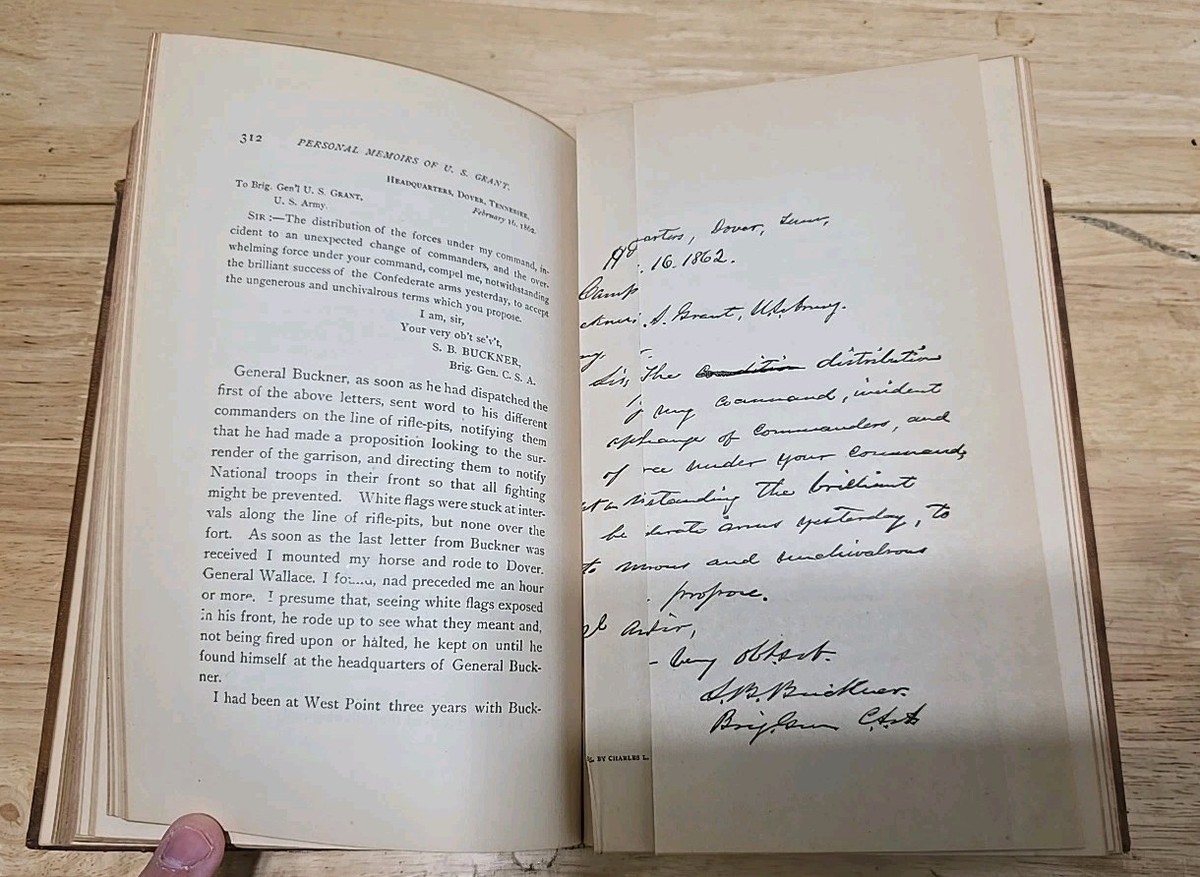 312
PERSONAL MEMOIRS OF U. S. GRANT.
HEADQUARTERS, DOVER, TENNESSEE,
February 16, 1862.
To Brig. Gen'l U. S. GRANT,
U. S. Army.
SIR :—The distribution of the forces under my command, in-
cident to an unexpected change of commanders, and the over-
whelming force under your command, compel me, notwithstanding
the brilliant success of the Confederate arms yesterday, to accept
the ungenerous and unchivalrous terms which you propose.
I am, sir,
Your very ob't se'v't,
S. B. BUCKNER,
Brig. Gen. C. S. A.
General Buckner, as soon as he had dispatched the
first of the above letters, sent word to his different
commanders on the line of rifle-pits, notifying them
that he had made a proposition looking to the sur-
render of the garrison, and directing them to notify
National troops in their front so that all fighting
might be prevented. White flags were stuck at inter-
vals along the line of rifle-pits, but none over the
fort. As soon as the last letter from Buckner was
received I mounted my horse and rode to Dover.
General Wallace, I had preceded me an hour
or more. I presume that, seeing white flags exposed
in his front, he rode up to see what they meant and,
not being fired upon or halted, he kept on until he
found himself at the headquarters of General Buck-
ner.
I had been at West Point three years with Buck-
arters, Dover, Tenn,
. 16. 1862.
Camp
S. Grant, U.S. Army.
Sir, The condition distribution
my command, incident
change of commanders, and
of under your command,
istanding the brilliant
be derate arms yesterday, to
to nerous and unchivalrous
propose.
sir,
very obt. sevt.
S. B. Buckner.
Brig. Gen C.S.A
BY CHARLES L.